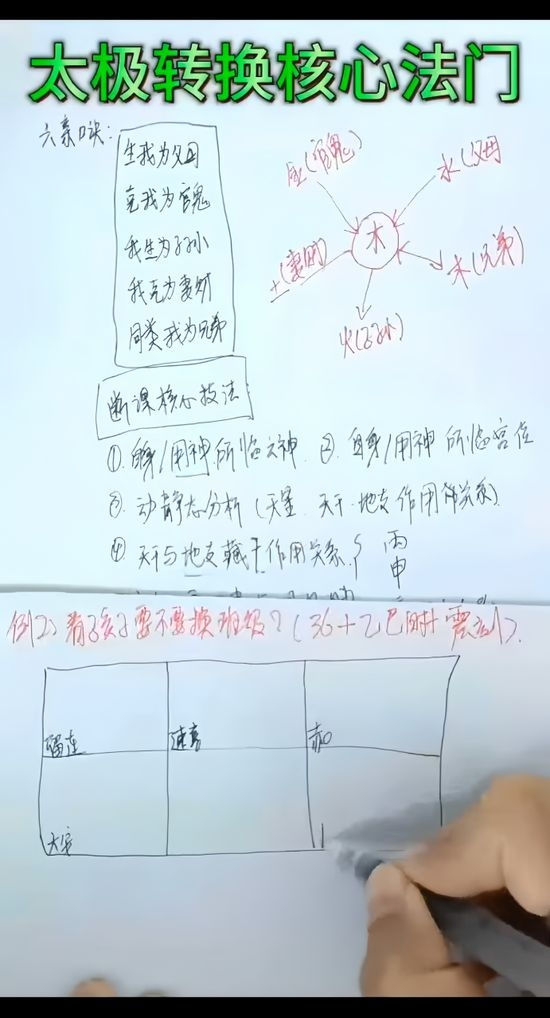 太极转换核心法门
六亲口诀：
生我为父母
克我为官鬼
我生为子孙
我克为妻财
同类我为兄弟
金(官鬼)
水(父母
木
土(妻财)
木(兄弟)
火(子孙)
断课核心技法
①.自身/用神所临六神. ②.自身/用神所临宫位
③.动静态分析(天星.天干.地支作用
④.天干与地支藏干作用关系.
丙
申
例2：看孩子要不要换班级？(36+乙巳时+震
留连 速喜 赤口
大安